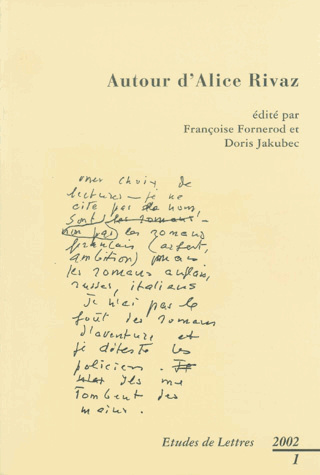 Autour d'Alice Rivaz
édité par
Françoise Fornerod et
Doris Jakubec
mon choix de
lectures – je ne
cite pas de nom,
sont les romans
non pas les romans
français (argent,
ambition) mais
les romans anglais,
russes, italiens
Je n'ai pas le
goût des romans
d'aventure, et
je déteste les
policiers.
Ils me
Tombent des
mains.
Etudes de Lettres 2002
1